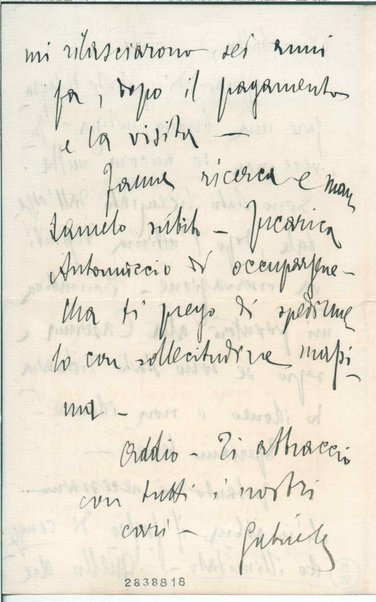 mi rilasciarono sei anni
fa, dopo il pagamento
e la visita –
Fanne ricerca e man
damelo subito – Incarica
Antonuccio di occuparsene –
Ma ti prego di spedirme
lo con sollecitudine massi
ma –
Addio – Ti abbraccio
con tutti i nostri
cari – Gabriele
2838818